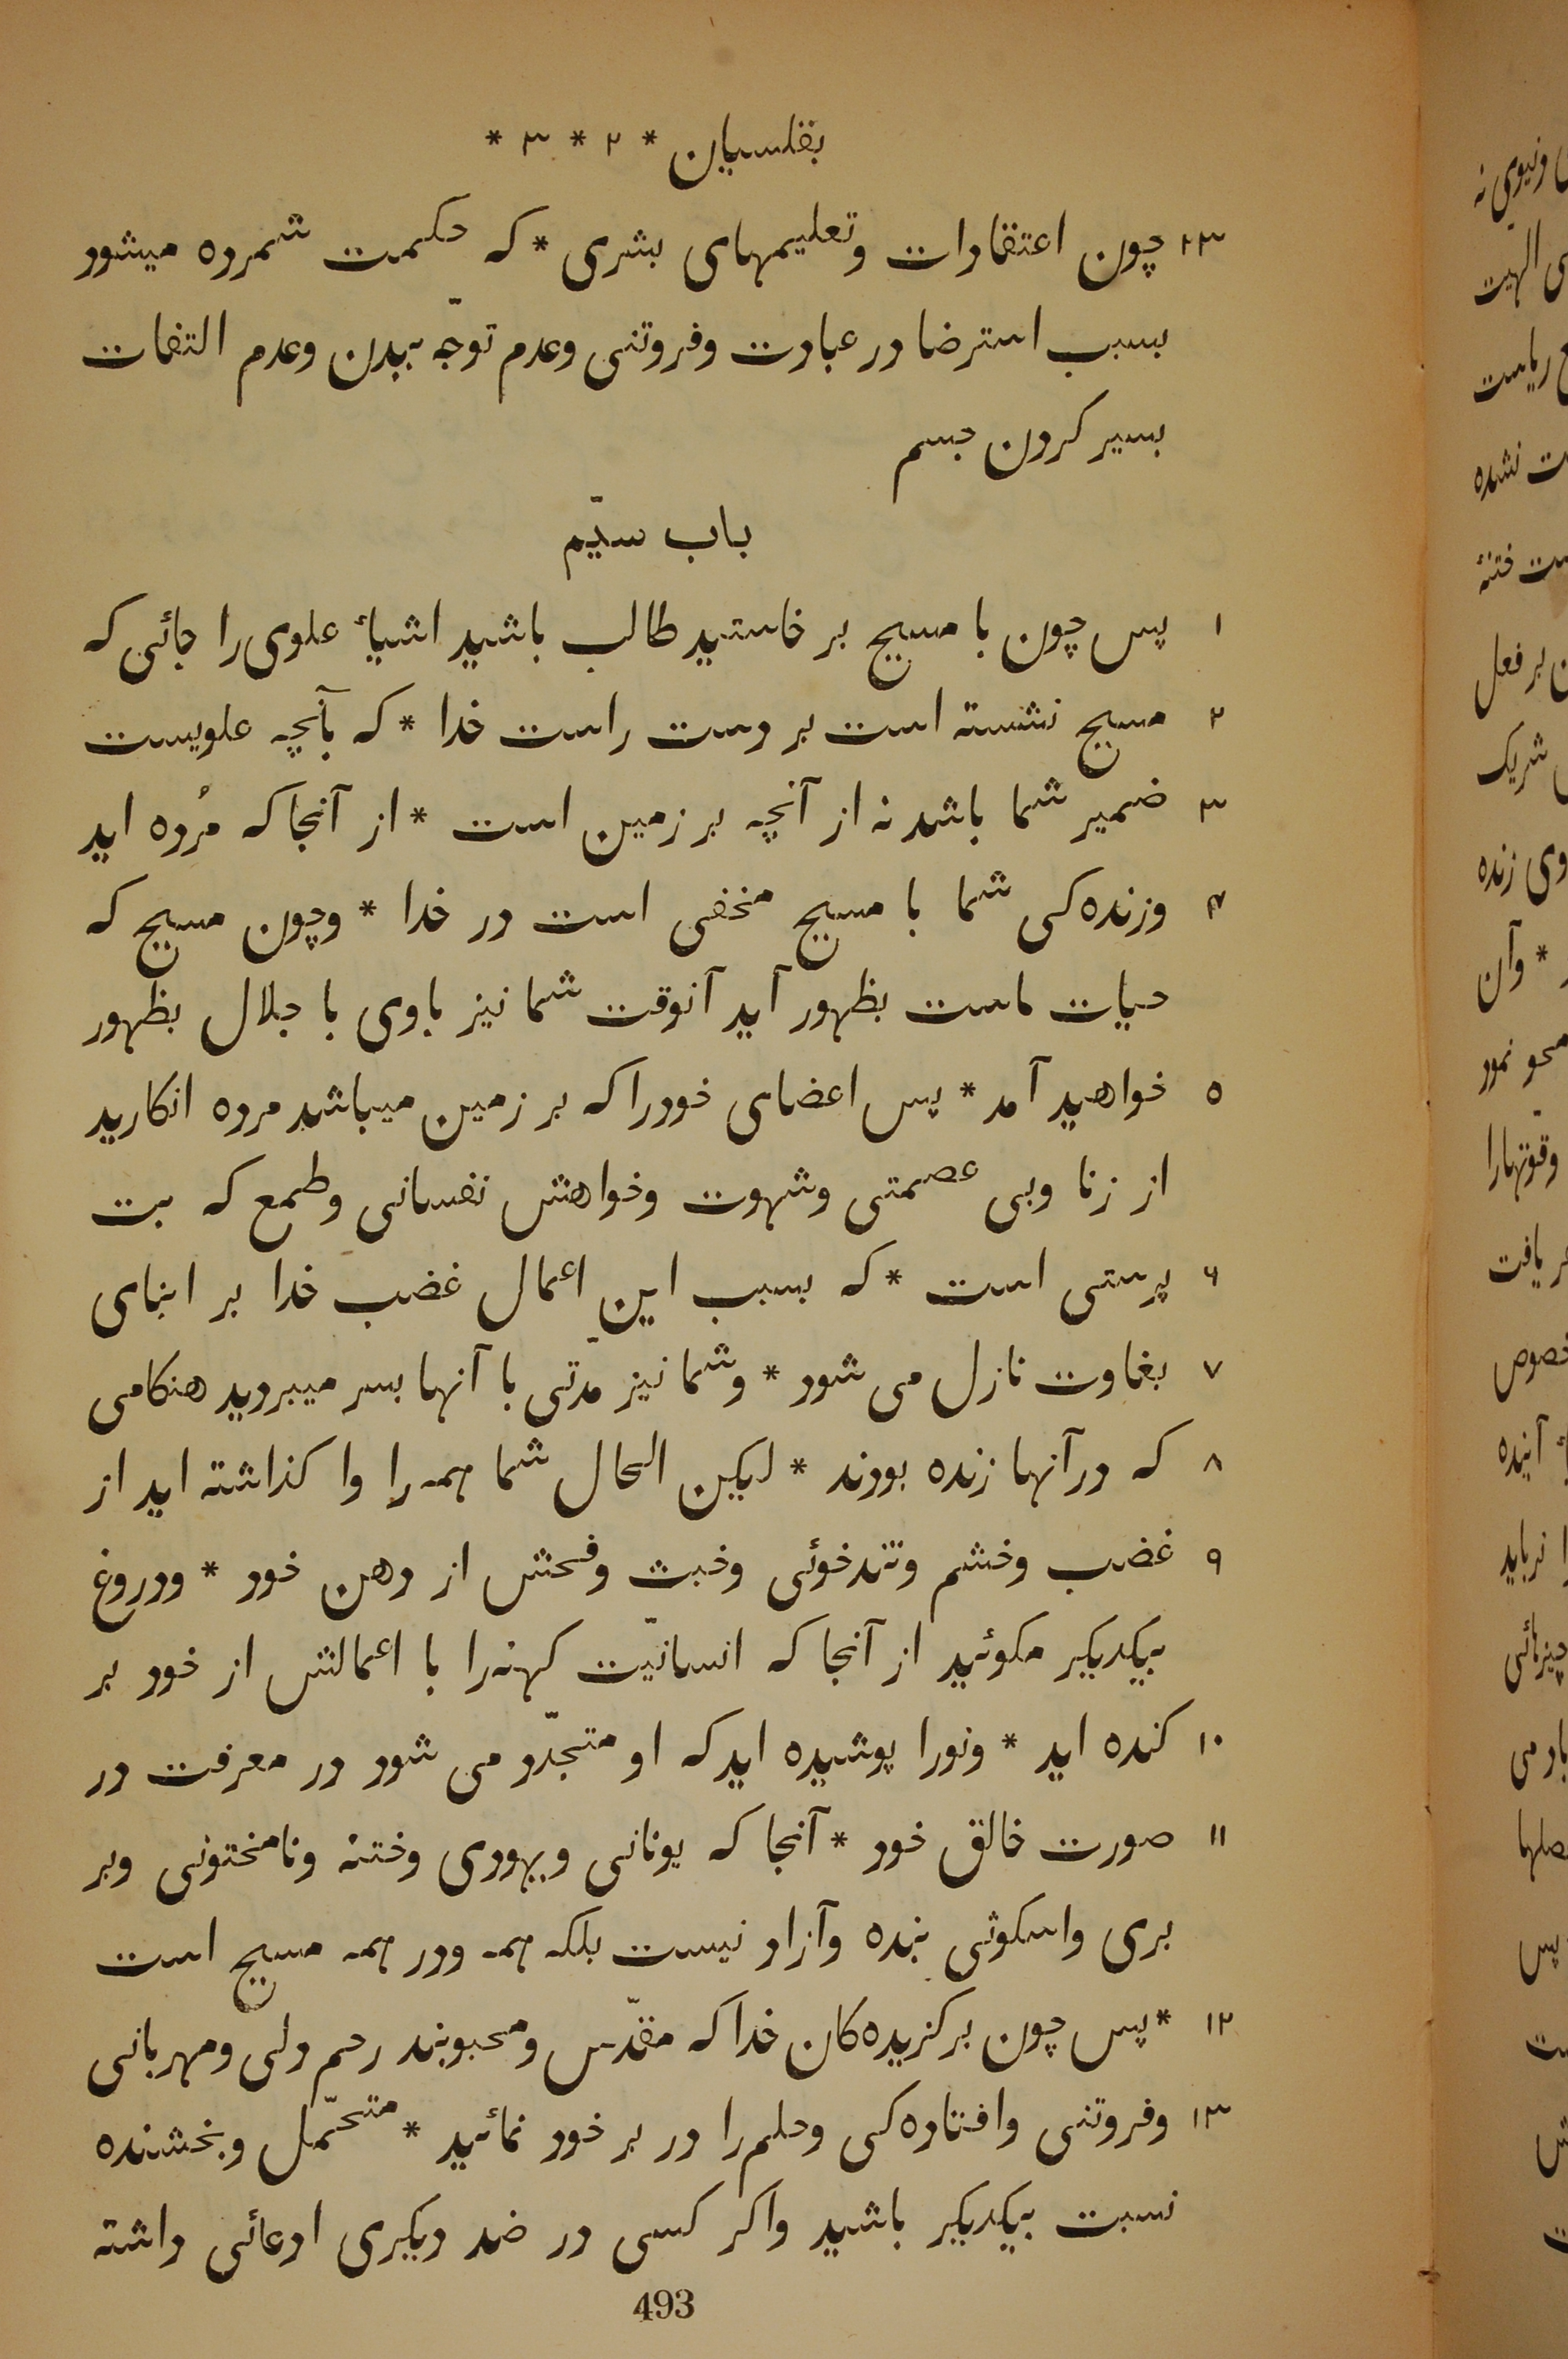 بقلسیان * ۲ * ۳ *
۲۳ چون اعتقادات وتعلیمهای بشری * که حکمت شمرده میشود
بسبب استرضا در عبادت وفروتنی وعدم توجّه ببدن وعدم التفات
بسیر کردن جسم
باب سیّم
۱ پس چون با مسیح بر خاستید طالب باشید اشیاٴ علوی را جائی که
۲ مسیح نشسته است بر دست راست خدا * که بآنچه علویست
۳ ضمیر شما باشد نه از آنچه بر زمین است * از آنجا که مُرده اید
۴ وزنده‌کی شما با مسیح مخفی است در خدا * وچون مسیح که
حیات ماست بظهور آید آنوقت شما نیز باوی با جلال بظهور
۵ خواهید آمد * پس اعضای خودرا که بر زمین میباشد مرده انکارید
از زنا وبی عصمتی وشهوت وخواهش نفسانی وطمع که بت
۶ پرستی است * که بسبب این اعمال غضب خدا بر ابنای
۷ بغاوت نازل می شود * وشما نیز مدّتی با آنها بسر میبردید هنکامی
۸ که در آنها زنده بودند * لیکن الحال شما همه را وا کذاشته اید از
۹ غضب وخشم وتندخوئی وخبث وفحش از دهن خود * ودروغ
بیکدیکر مکوئید از آنجا که انسانیّت کهنه را با اعمالش از خود بر
۱۰ کنده اید * ونورا پوشیده اید که او متجدّد می شود در معرفت در
۱۱ صورت خالق خود * آنجا که یونانی ویهودی وختنه ونامختونی وبر
بری واسکوثی بنده وآزاد نیست بلکه همه ودر همه مسیح است
۱۲ * پس چون برکزیده‌کان خدا که مقدّس ومحبوبند رحم دلی ومهربانی
۱۳ وفروتنی وافتاده‌کی وحلم را در بر خود نمائید * متحمّل وبخشنده
نسبت بیکدیکر باشید واکر کسی در ضد دیکری ادعائی داشته
493